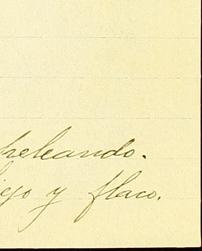 peleando.
viejo y flaco.